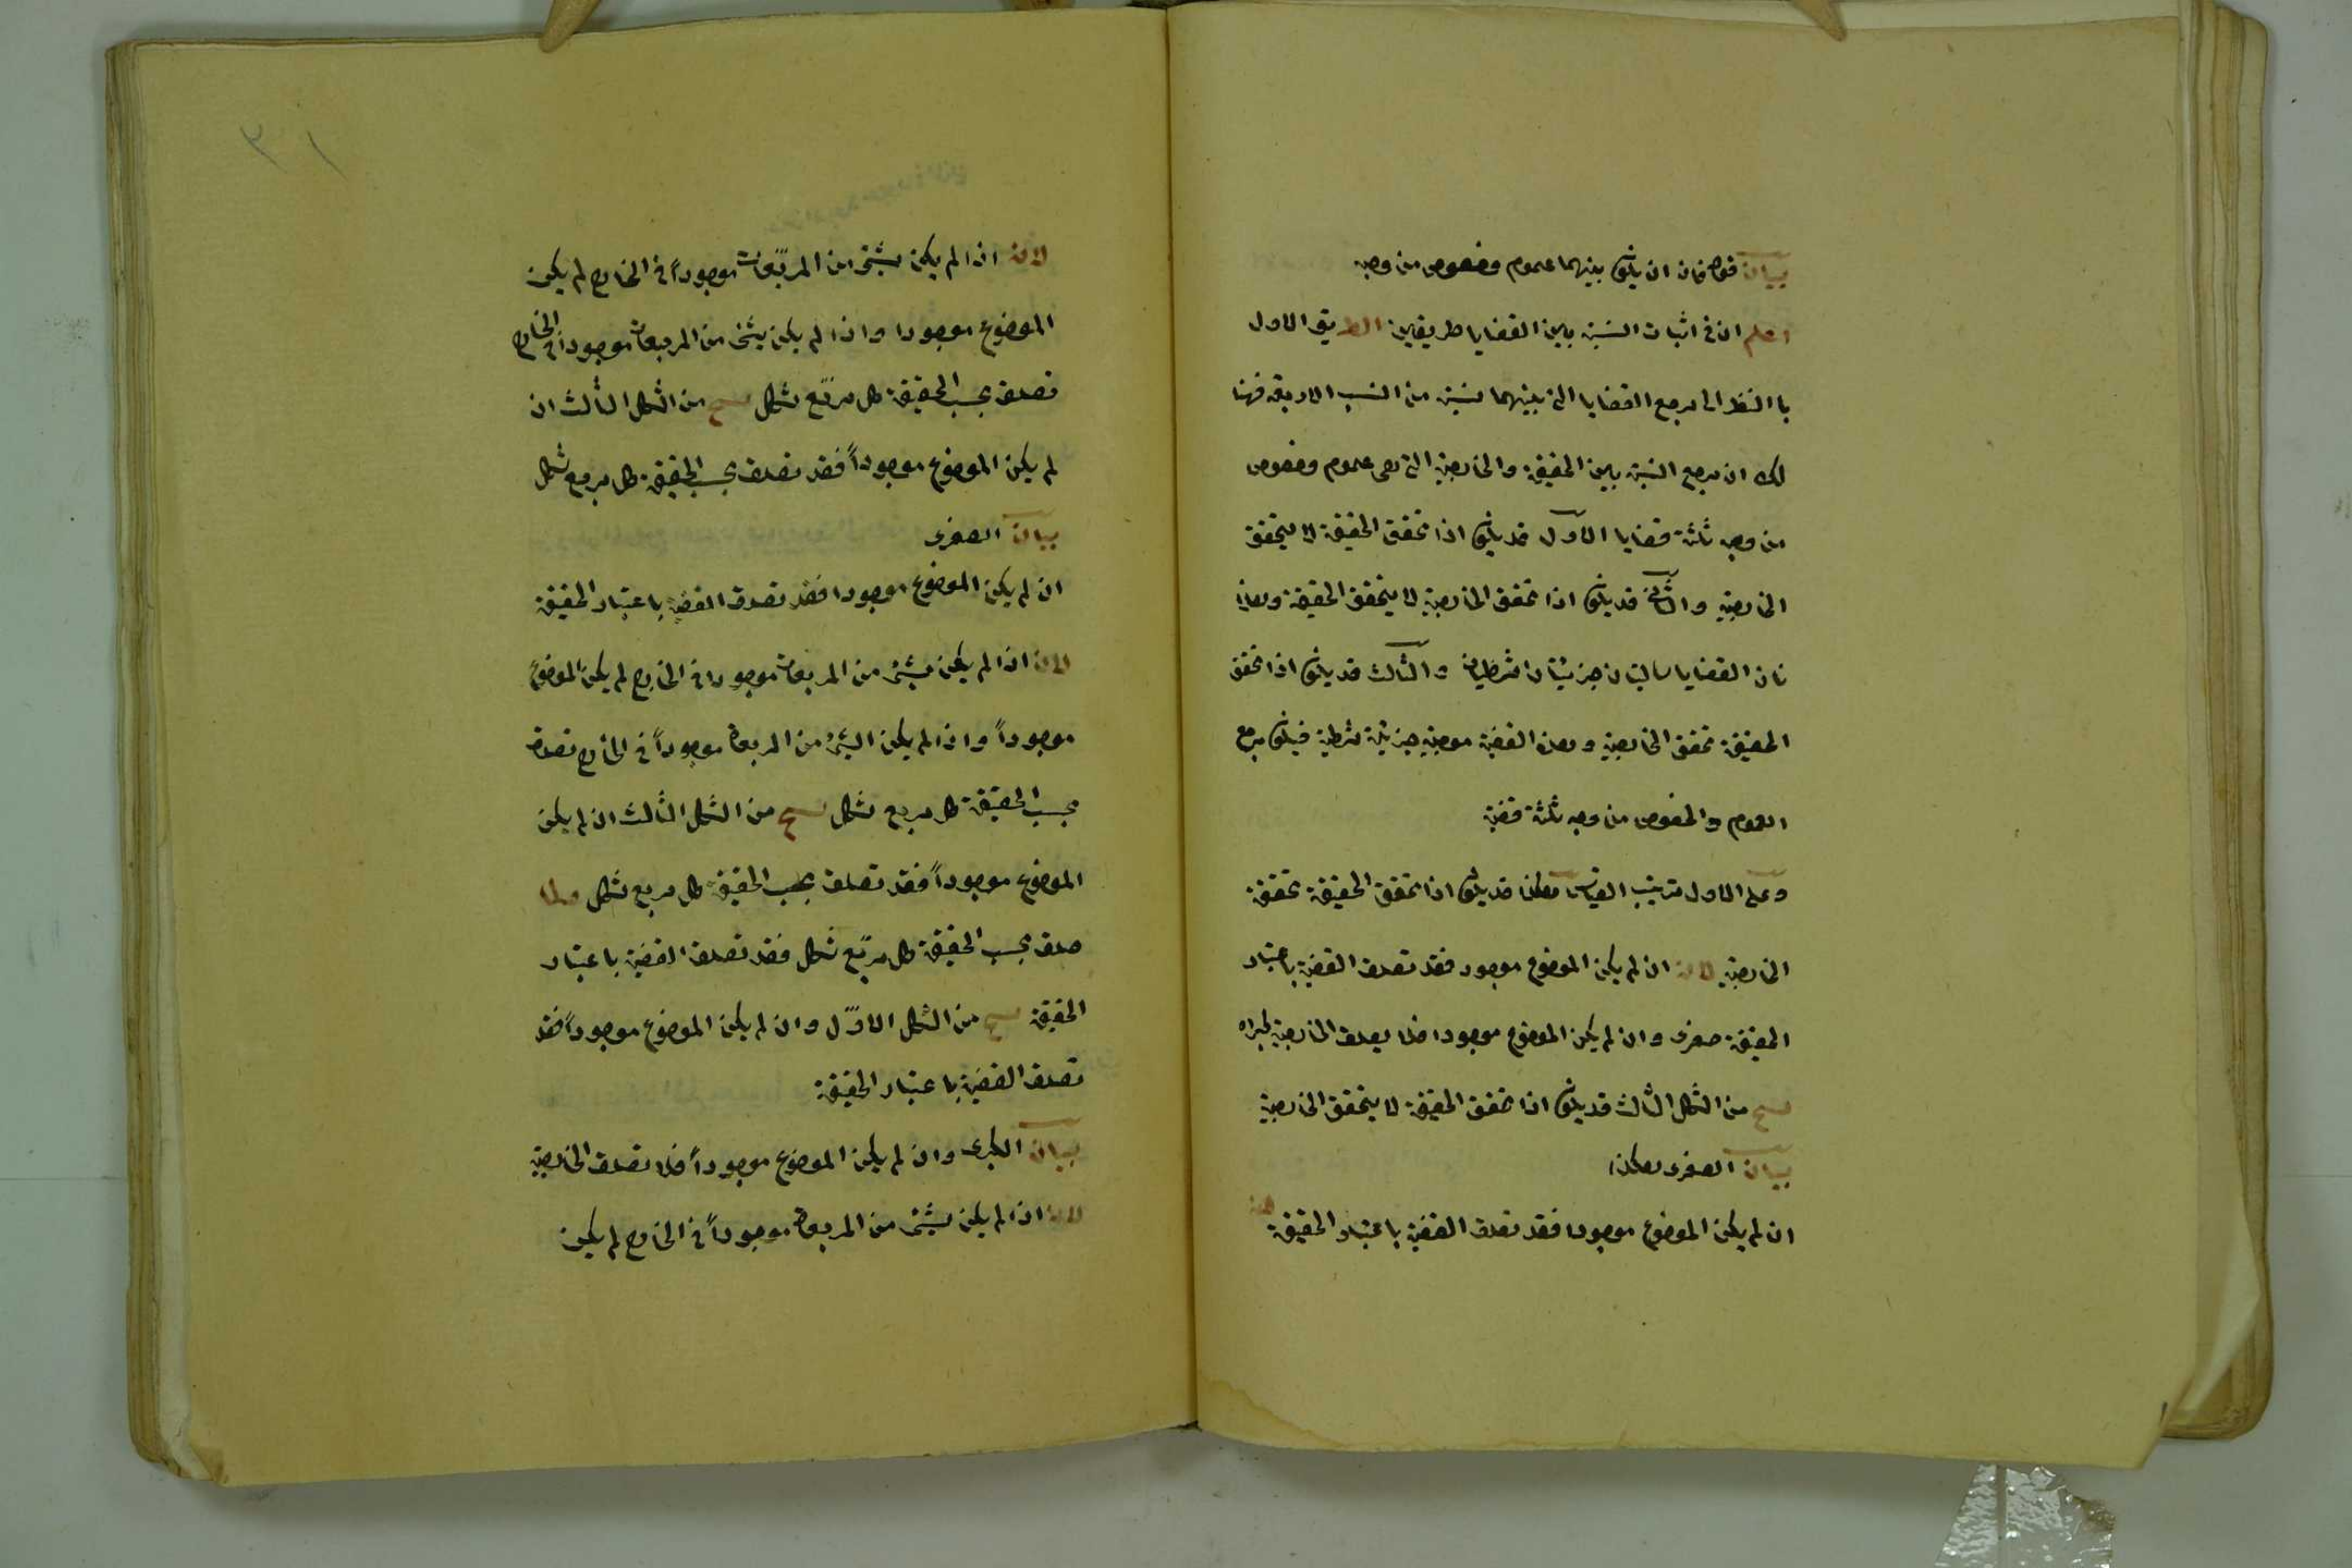 بيان قوله فان ان يكون بينهما عموم وخصوص من وجه
اعلم ان فى اثبات النسبة بين القضايا طريقين الطريق الاول
با النظر الى مرجع القضايا التى بينهما نسبة من النسب الاربعة فهنا
لك ان مرجع النسبة بين الحقيقة والخارجية التى هى عموم وخصوص
من وجه ثلثة قضايا الاول قد يكون اذا تحقق الحقيقة لا يتحقق
الخارجية والثانى قد يكون اذا تحقق الخارجية لا يتحقق الحقيقة وهذا
نان القضايا سالبتان جزئيتان شرطيتان والثالث قد يكون اذا تحقق
الحقيقة تحقق الخارجية وهذه القضية موجبة جزئية شرطية فيكون مرجع
العموم والخصوص من وجه ثلثة قضية
وعلى الاول ترتيب القياس هكذا قد يكون اذا تحقق الحقيقة تحققة
الخارجية لان ان لم يكن الموضوع موجود فقد تصدق القضية باعتبار
الحقيقة صغرى وان لم يكن الموضوع موجودا فلا يصدق الخارجية كبراه
من الشكل الثالث قد يكون اذا تحقق الحقيقة لا يتحقق الخارجية
بيان الصغرى هكذا
ان لم يكن الموضوع موجودا فقد تصدق القضية باعتبار الحقيقة
لان اذا لم يكن شئ من المربعات موجوداً فى الخارج لم يكن
الموضوع موجودا واذا لم يكن شئ من المربعات موجوداً فى الخارج
تصدق بحسب الحقيقة كل مربّع شكل من الشكل الثالث ان
لم يكن الموضوع موجوداً فقد تصدق بحسب الحقيقة كل مربع شكل
بيان الصغرى
ان لم يكن الموضوع موجودا فقد تصدق القضية باعتبار الحقيقة
لان اذا لم يكن شئ من المربعات موجودا فى الخارج لم يكن الموضوع
موجوداً واذا لم يكن الشئ من المربعات موجوداً فى الخارج تصدق
بحسب الحقيقة كل مربع شكل من الشكل الثالث ان لم يكن
الموضوع موجوداً فقد تصدق بحسب الحقيقة كل مربع شكل وكلما
صدق بحسب الحقيقة كل مربّع شكل فقد تصدق القضية باعتبار
الحقيقة من الشكل الاوّل وان لم يكن الموضوع موجوداً فقد
تصدق القضية باعتبار الحقيقة
بيان الكبرى وان لم يكن الموضوع موجوداً فلا تصدق الخارجية
لان اذا لم يكن شئ من المربعات موجوداً فى الخارج لم يكن